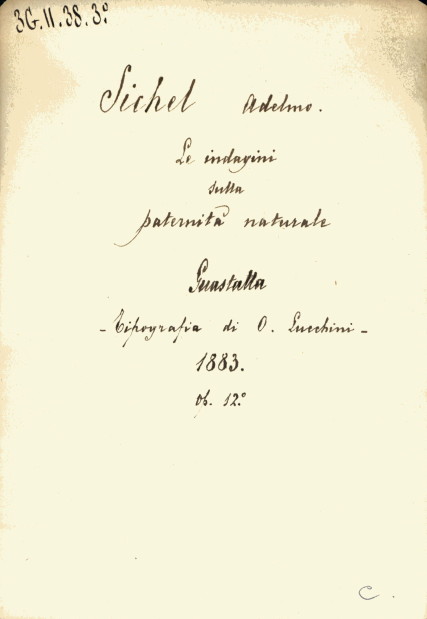 3G.11.38.3º
Sichel Adelmo.
Le indagini
sulla
paternità naturale
Guastalla
- Tipografia di O. Lucchini -
1883.
Op. 12º
C.